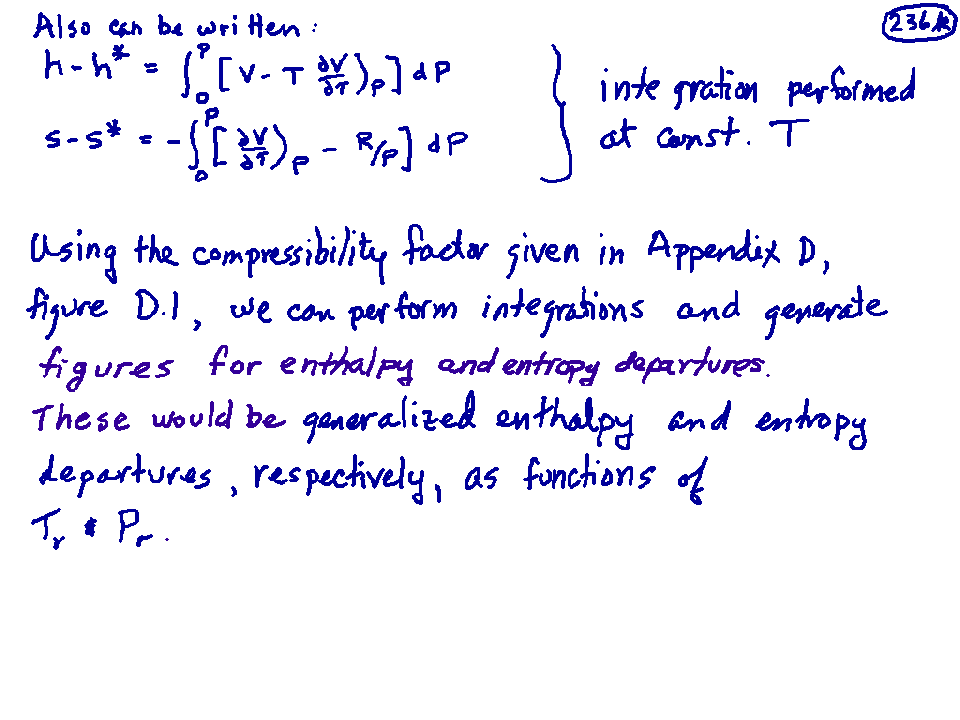 Also can be written: 236k
h-h* = ∫₀ᴾ [v - T ∂v/∂T)ₚ] dP
s-s* = -∫₀ᴾ [∂v/∂T)ₚ - R/P] dP
} integration performed
at const. T
Using the compressibility factor given in Appendix D,
figure D.1, we can perform integrations and generate
figures for enthalpy and entropy departures.
These would be generalized enthalpy and entropy
departures, respectively, as functions of
Tᵣ & Pᵣ.